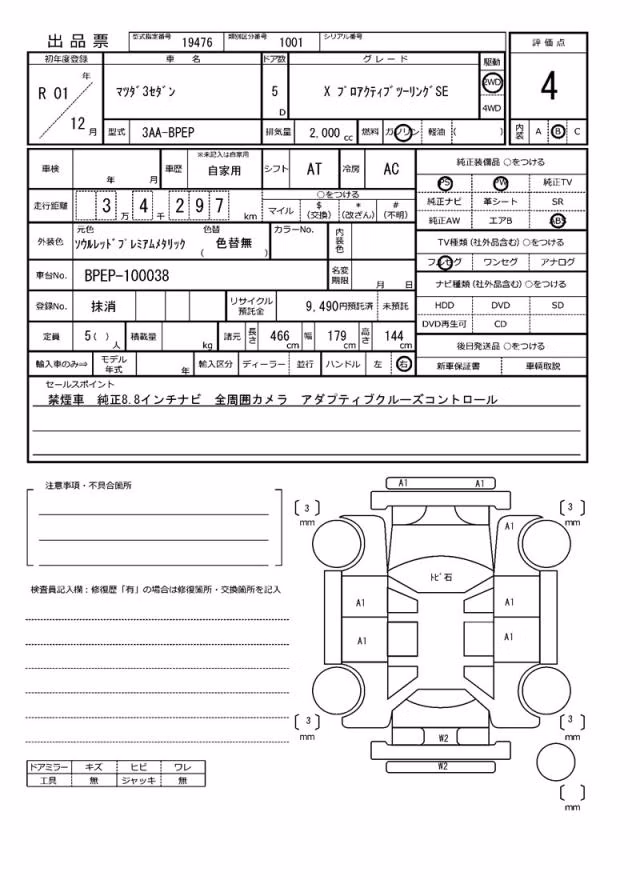 出品票 型式指定番号 19476 類別区分番号 1001 シリアル番号
評価点
4
内装 A B C
初年度登録 車名 ドア数 グレード 駆動
R 01 年 12 月 マツダ3セダン 5 D X プロアクティブツーリングSE 2WD 4WD
型式 3AA-BPEP 排気量 2,000 cc 燃料 ガソリン 軽油 ( )
車検 年 月 車歴 ※未記入は自家用 自家用 シフト AT 冷房 AC
走行距離 3 万 4 千 2 9 7 km
○をつける
マイル $ (交換) * (改ざん) # (不明)
外装色 元色 ソウルレッドプレミアムメタリック 色替 ( 色替無 ) カラーNo. 内装色
車台No. BPEP-100038 名変期限 月 日
登録No. 抹消 リサイクル預託金 9,490円預託済 未預託
定員 5( ) 人 積載量 kg 諸元 長さ 466 cm 幅 179 cm 高さ 144 cm
輸入車のみ⇒ モデル年式 年 輸入区分 ディーラー 並行 ハンドル 左 右
純正装備品 ○をつける
PS PW 純正TV
純正ナビ 革シート SR
純正AW エアB ABS
TV種類 (社外品含む) ○をつける
フルセグ ワンセグ アナログ
ナビ種類 (社外品含む) ○をつける
HDD DVD SD
DVD再生可 CD
後日発送品 ○をつける
新車保証書 車輌取説
セールスポイント
禁煙車 純正8.8インチナビ 全周囲カメラ アダプティブクルーズコントロール
注意事項・不具合箇所
検査員記入欄:修復歴「有」の場合は修復箇所・交換箇所を記入
ドアミラー キズ ヒビ ワレ
工具 無 ジャッキ 無
A1 A1
3 mm 3 mm
A1
トビ石
A1 A1
A1 A1
3 mm 3 mm
W2
W2
mm